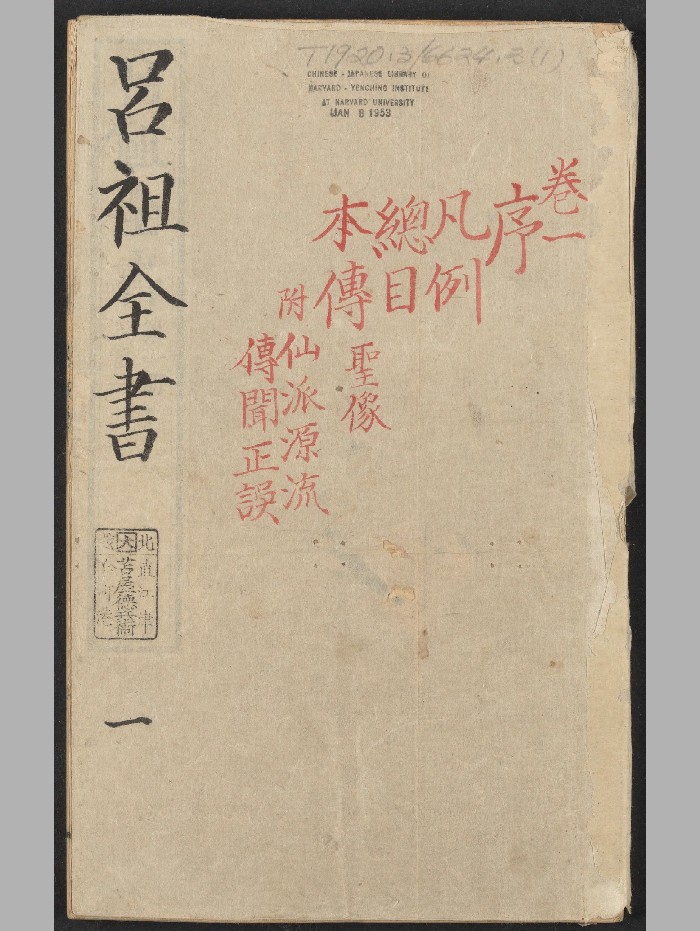 T1920.13/6624.2(1)
CHINESE - JAPANESE LIBRARY OF
HARVARD - YENCHING INSTITUTE
AT HARVARD UNIVERSITY
JAN 8 1953
卷一
序
凡例
總目
本傳 聖像
附仙派源流
傳聞正誤
呂祖全書
一
北直
大
苫屋德兵衞